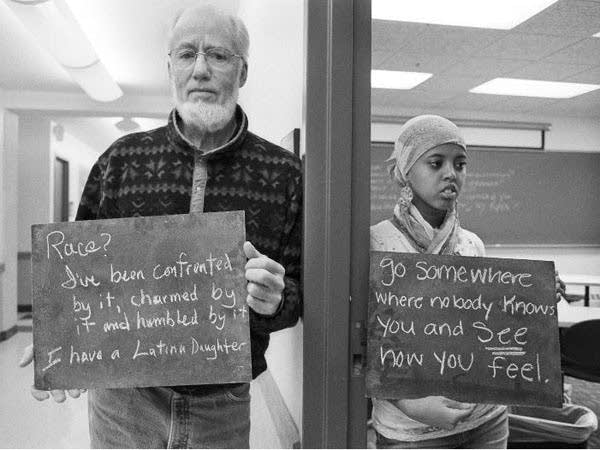 Race?
I've been confronted
by it, charmed by
it and humbled by it
I have a Latina Daughter
go somewhere
where nobody knows
you and see
how you feel.